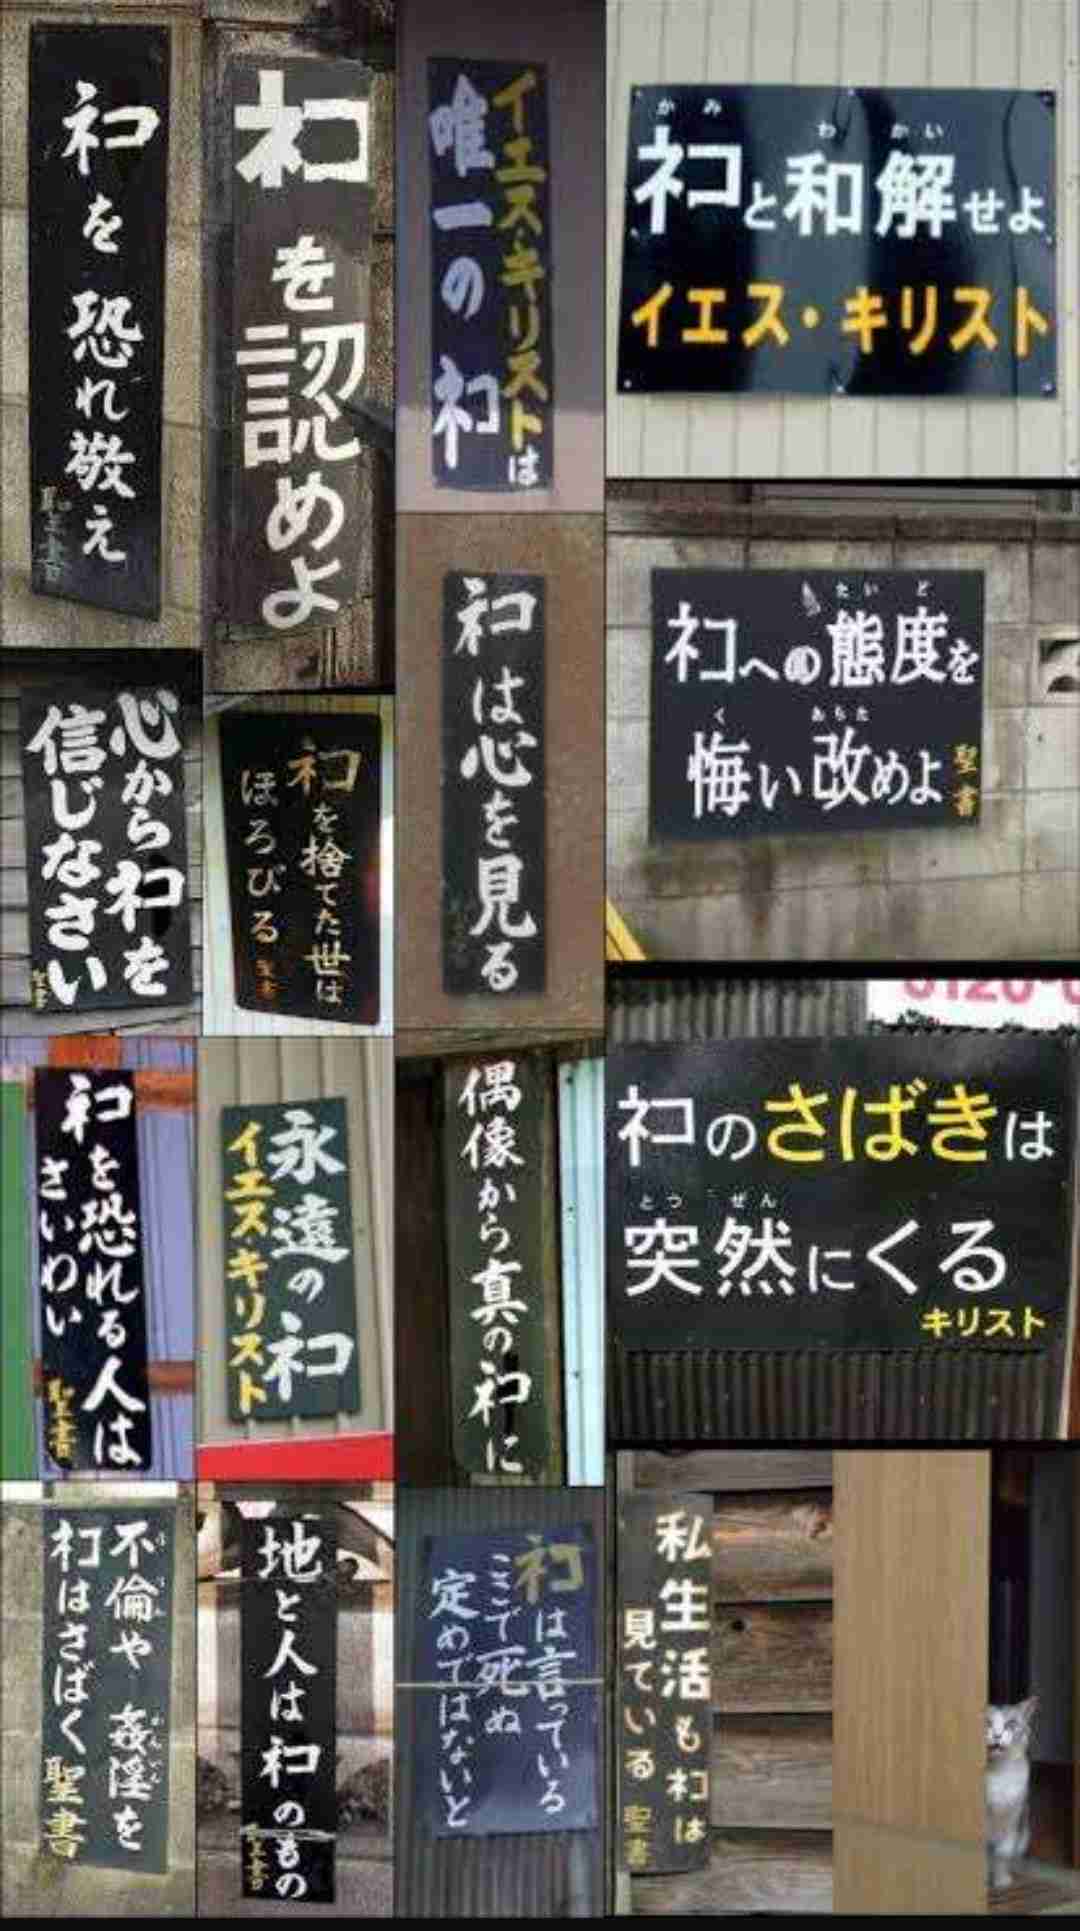 ネコを恐れ敬え
聖書
ネコを認めよ
イエスキリストは
唯一のネコ
かみ わかい
ネコと和解せよ
イエス・キリスト
心からネコを
信じなさい
聖書
ネコを捨てた世は
ほろびる
聖書
ネコは心を見る
たいど
ネコへの態度を
く あらた
悔い改めよ
聖書
0120-0
ネコを恐れる人は
さいわい
聖書
永遠のネコ
イエスキリスト
偶像から真のネコに
ネコのさばきは
とつぜん
突然にくる
キリスト
不倫や姦淫を
ネコはさばく
聖書
地と人はネコのもの
聖書
ネコは言っている
ここで死ぬ
定めではないと
私生活もネコは
見ている
聖書